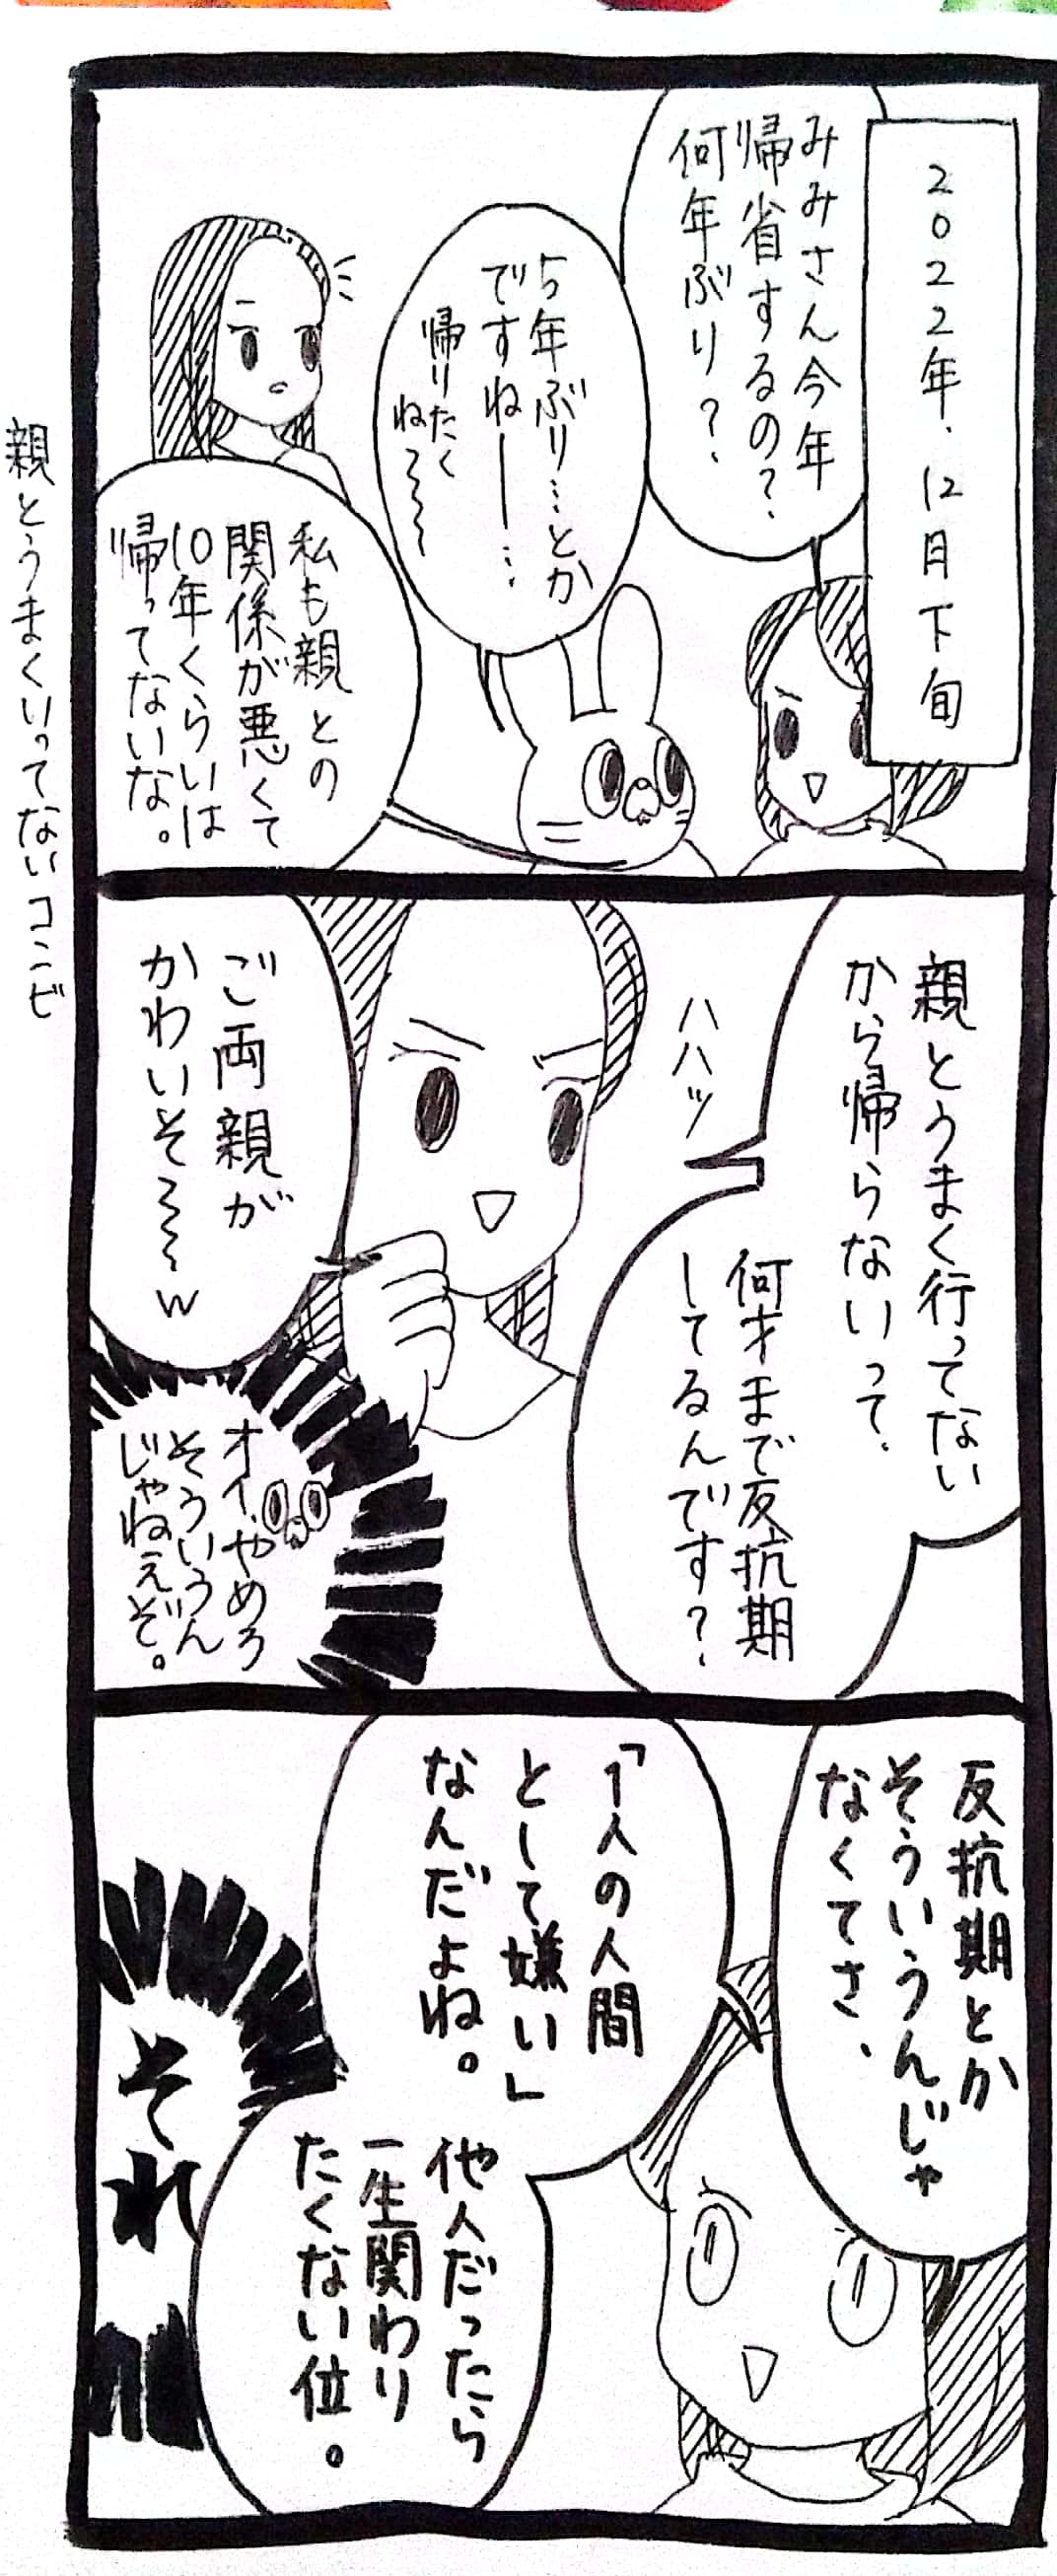 2022年、12月下旬
みみさん今年
帰省するの?
何年ぶり?
5年ぶり…とか
ですねー…
帰りたく
ね~~~
私も親との
関係が悪くて
10年くらいは
帰ってないな。
親とうまくいってないコンビ
親とうまく行ってない
から帰らないって、
何才まで反抗期
してるんです?
ハハッ
ご両親が
かわいそ~~~w
オイ、やめろ
そういうん
じゃねえぞ。
反抗期とか
そういうんじゃ
なくてさ、
「1人の人間
として嫌い」
なんだよね。
他人だったら
一生関わり
たくない位。
それ